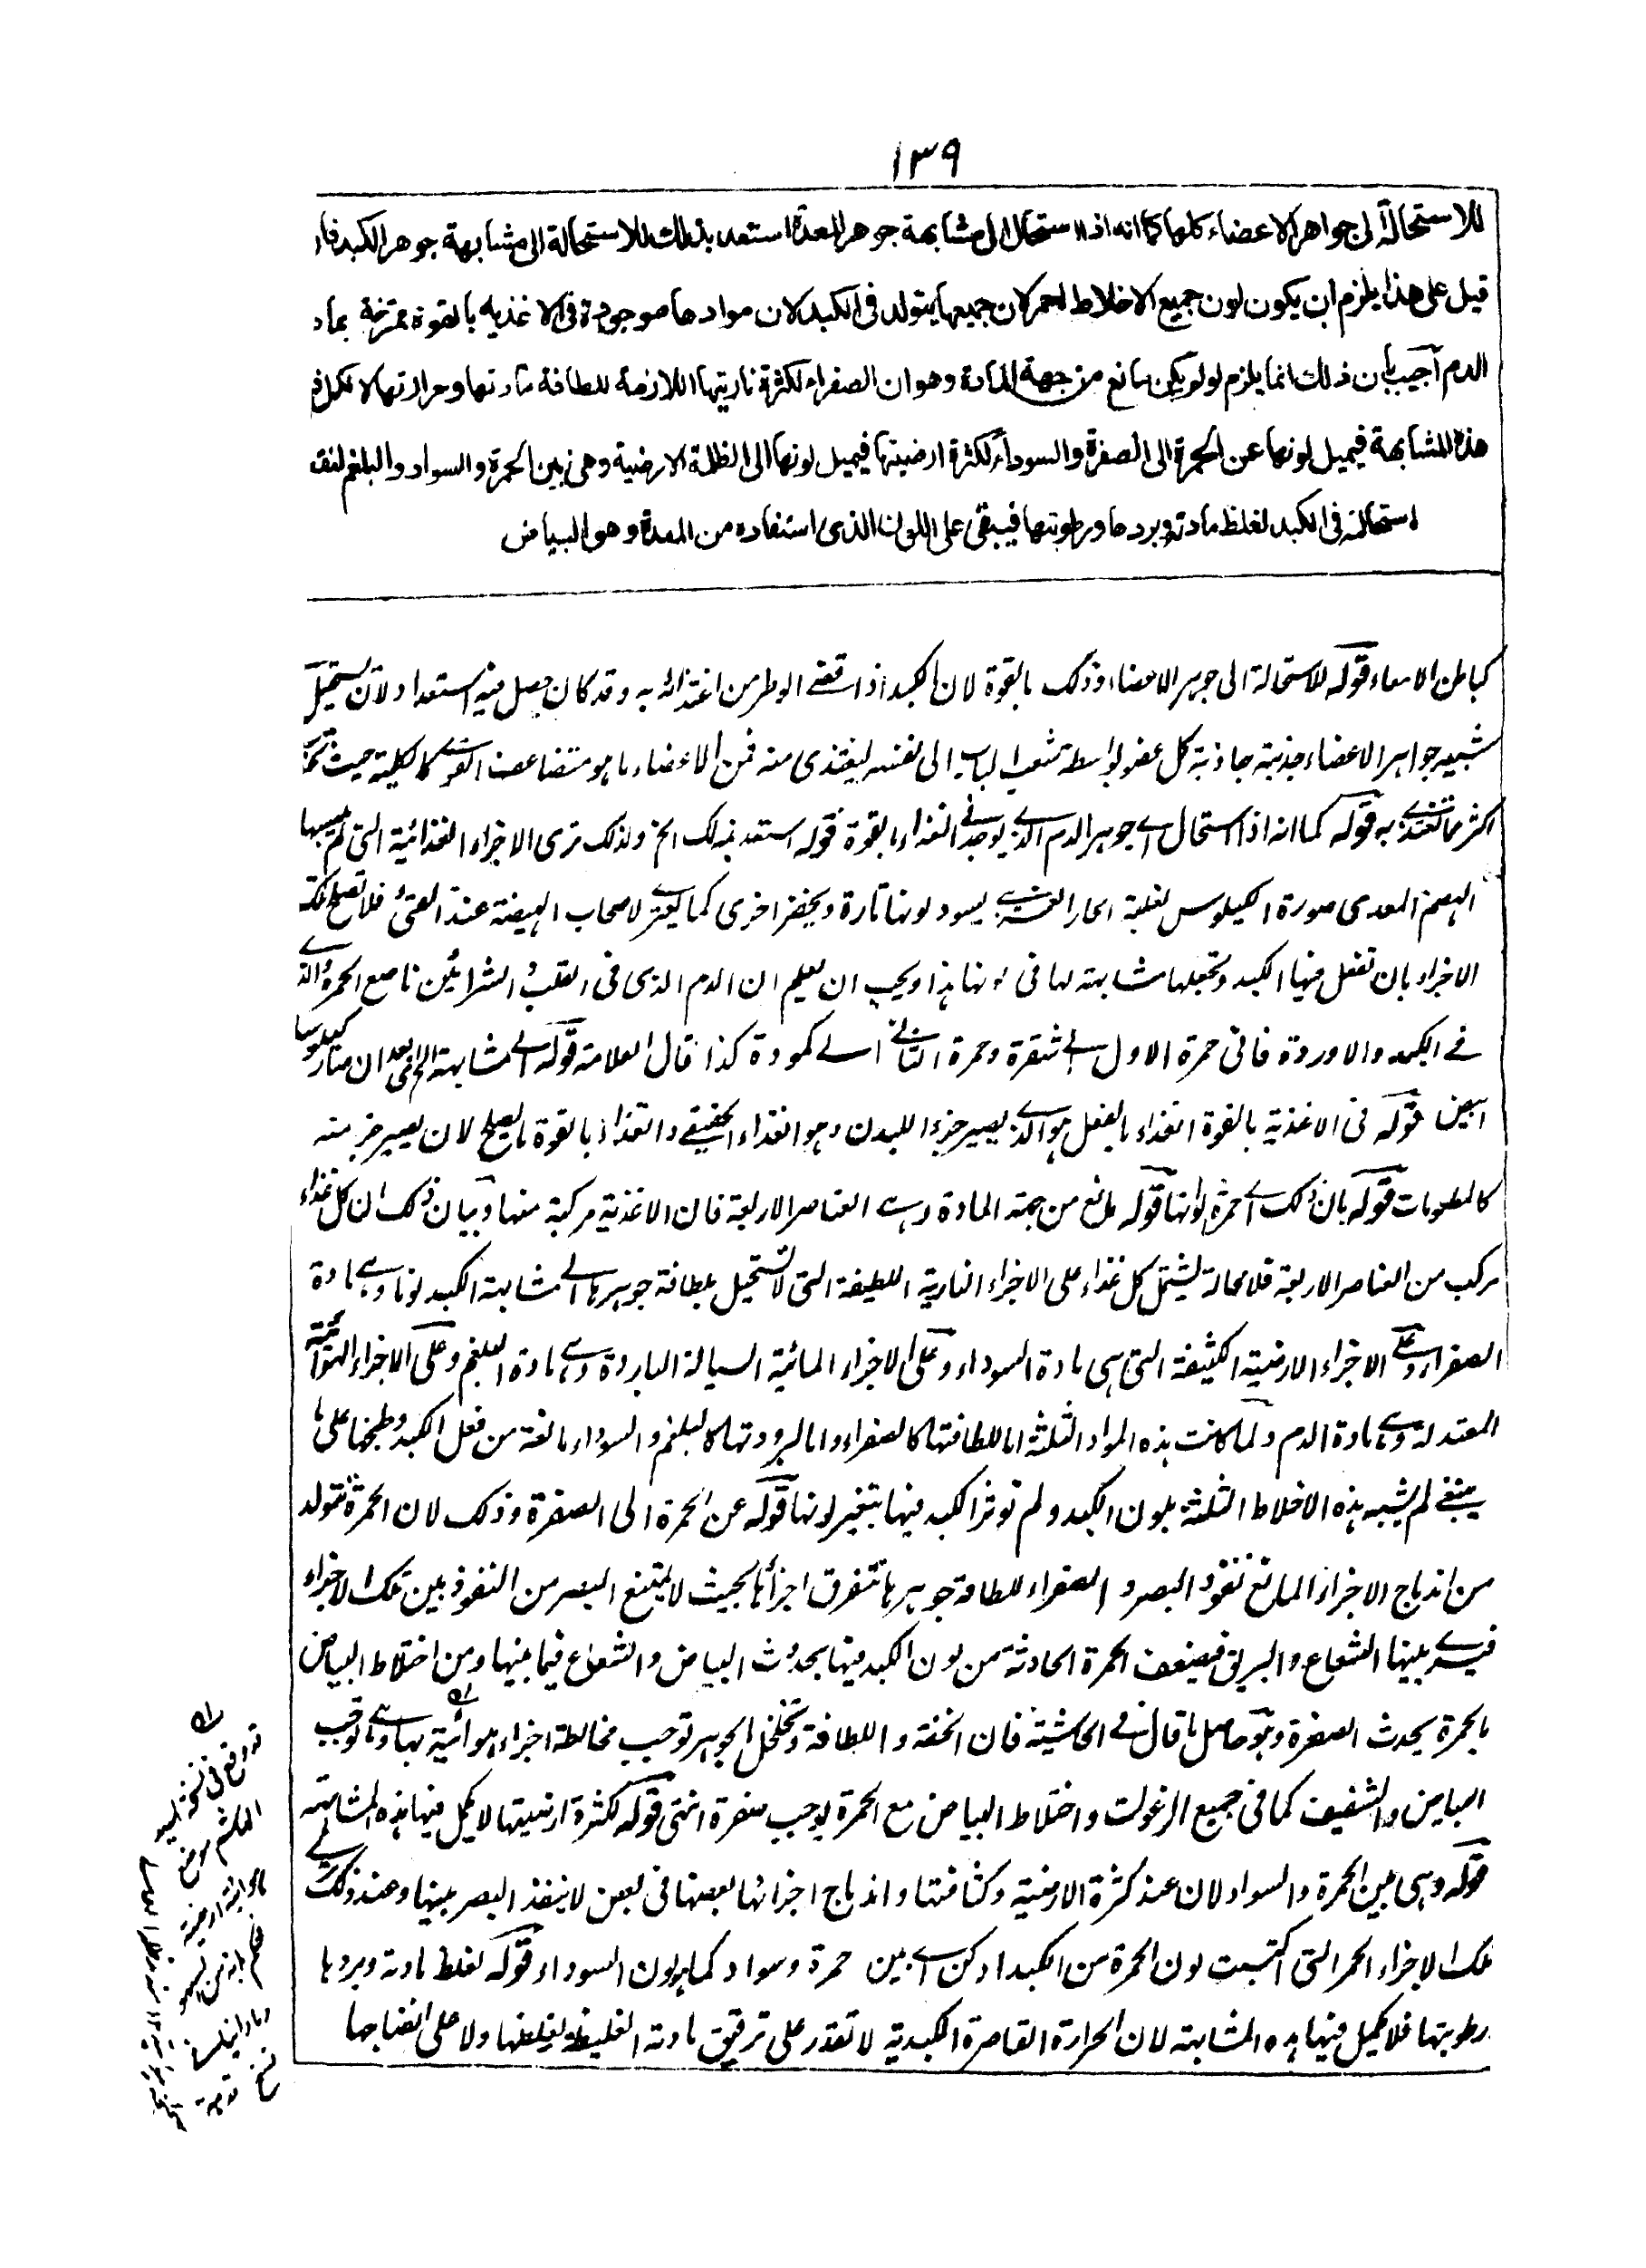 ١٣٩
للاستحالة الى جواهر الاعضاء كلها كما انه اذا استحال الى مشابهة جوهر المعدة استعد بذلك للاستحالة الى مشابهة جوهر الكبد فان
قيل على هذا يلزم ان يكون لون جميع الاخلاط احمر لان جميعها يتولد فى الكبد لان موادها موجودة فى الاغذيه بالقوة ممتزجة بماد
الدم آجيب بأن ذلك انما يلزم لو لم يكن مانع من جهة المادة وهو ان الصفراء لكثرة ناريتها اللازمة للطافة مادتها وحرارتها لا تكمل فيها
هذه المشابهة فيميل لونها عن الحمرة الى الصفرة والسوداء لكثرة ارضيتها فيميل لونها الى الظلمة الارضية وهى بين الحمرة والسواد والبلغم لنقص
استحالته فى الكبد لغلظ مادته وبردها ورطوبتها فيبقى على اللون الذى استفاده من المعدة وهو البياض
كباطن الامعاء قوله للاستحالة الى جوهر الاعضاء وذلك بالقوة لان الكبد اذا قضى الوطر من اغتذائه به وقد كان حصل فيه استعداد لان تستحيل
شبيه جواهر الاعضاء جذبته جاذبة كل عضو بواسطة شعب الباب الى نفسه ليغتذى منه فمن الاعضاء ما هو متضاعف القوى كالكلية حيث
اكثر مما تغتذى به قوله كما انه اذا استحال اى جوهر الدم الذى يوجد فى الغذاء بالقوة قوله استعد بذلك الخ ولذلك ترى الاجزاء الغذائية التى لم يلبسها
الهضم المعدى صورة الكيلوس لغلبة الحار الغريب يسود لونها تارة ويخضر اخرى كما يعترى لاصحاب الهيضة عند القئ فلا تصلح تلك
الاجزاء بان تفعل فيها الكبد وتجعلها مشابهة لها فى لونها هذا ويجب ان يعلم ان الدم الذى فى القلب والشرائين ناصع الحمرة والذى
فى الكبد والاوردة قانى حمرة الاول الى شقرة وحمرة الثانى الى كمودة كذا قال العلامة قوله الى مشابهة الخ اى بعد ان صار كيلوسا
ابيض قوله فى الاغذية بالقوة الغذاء بالفعل هو الذى يصير جزء للبدن وهو الغذاء الحقيقى والغذاء بالقوة ما يصلح لان يصير جزء منه
كالمطعومات قوله بان ذلك اى حمرة لونها قوله مانع من جهة المادة وهى العناصر الاربعة فان الاغذية مركبة منها وبيان ذلك ان كل غذاء
مركب من العناصر الاربعة فلا محالة يشتمل كل غذاء على الاجزاء النارية اللطيفة التى لا تستحيل بلطافة جوهرها الى مشابهة الكبد لونا وهى مادة
الصفراء وعلى الاجزاء الارضية الكثيفة التى هى مادة السوداء وعلى الاجزاء المائية السيالة الباردة وهى مادة البلغم وعلى الاجزاء الهوائية
المعتدلة وهى مادة الدم ولما كانت هذه المواد الثلثة اما للطافتها كالصفراء واما لبرودتها كالبلغم والسوداء مانعة من فعل الكبد وطبخها على ما
ينبغى لم يشبه هذه الاخلاط الثلثة بلون الكبد ولم تؤثر الكبد فيها بتغير لونها قوله عن الحمرة الى الصفرة وذلك لان الحمرة تتولد
من اندماج الاجزاء المانع نفوذ البصر و الصفراء للطافة جوهرها تتفرق اجزائها بحيث لا يمتنع البصر من النفوذ بين تلك الاجزاء
فيسرى بينها الشعاع والبريق فيضعف الحمرة الحادثة من لون الكبد فيها بحدوث البياض والشعاع فيما بينها ومن اختلاط البياض
بالحمرة يحدث الصفرة وهو حاصل ما قال فى الحاشية فان الخفة واللطافة وتخلخل الجوهر توجب مخالطة اجزاء هوائية بها وهى توجب
البياض والشفيف كما فى جميع الرغوات واختلاط البياض مع الحمرة يوجب صفرة انتهى قوله لكثرة ارضيتها لا يكمل فيها هذه المشابهة
قوله وهى بين الحمرة والسواد لان عند كثرة الارضية وكثافتها واندماج اجزائها بعضها فى بعض لا ينفذ البصر بينها وعند ذلك
تلك الاجزاء الحمر التى اكتسبت لون الحمرة من الكبد ادكن اى بين حمرة وسواد كما هو لون السوداء قوله لغلظ مادته وبردها
رطوبتها فلا يكمل فيها هذه المشابهة لان الحرارة القاصرة الكبدية لا تقدر على ترقيق مادته الغليظة لغلظها ولا على انضاجها